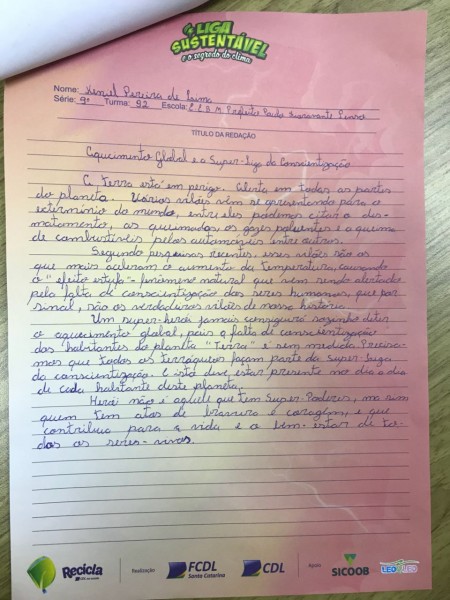 A LIGA
SUSTENTÁVEL
e o segredo do clima
Nome: Keniel Pereira de Lima
Série: 9º Turma: 92 Escola: E.E.B.M. Prefeito Paulo
TÍTULO DA REDAÇÃO
Aquecimento Global e a Super-Liga da Conscientização
A terra está em perigo. Alerta em todas as partes
do planeta. Vários vilões vêm se apresentando para o
extermínio do mundo, entre eles podemos citar o des-
matamento, as queimadas os gazes poluentes e a queima
de combustíveis pelos automoveis entre outros.
Segundo pesquisas recentes, esses vilões são os
que mais aceleram o aumento da temperatura, causando
o "efeito estufa - fenômeno natural que vem sendo alertado
pela falta de conscientização dos seres humanos, que por
sinal, são os verdadeiros vilões de nossa história.
Um super-herói jamais conseguirá sozinho deter
o aquecimento global, pois a falta de conscientização
dos habitantes do planeta "Terra" é sem medida. Precisa-
mos que todos os terráqueos façam parte da Super-Liga
da conscientização. E isto deve estar presente no dia a dia
de cada habitante deste planeta.
Herói não é aquele que tem Super-Poderes, mas sim
quem tem atos de bravura e coragem, e que
contribua para a vida e o bem-estar de to-
dos os seres-vivos.
Recicla
Realização
FCDL
Santa Catarina
CDL
Apoio
SICOOB